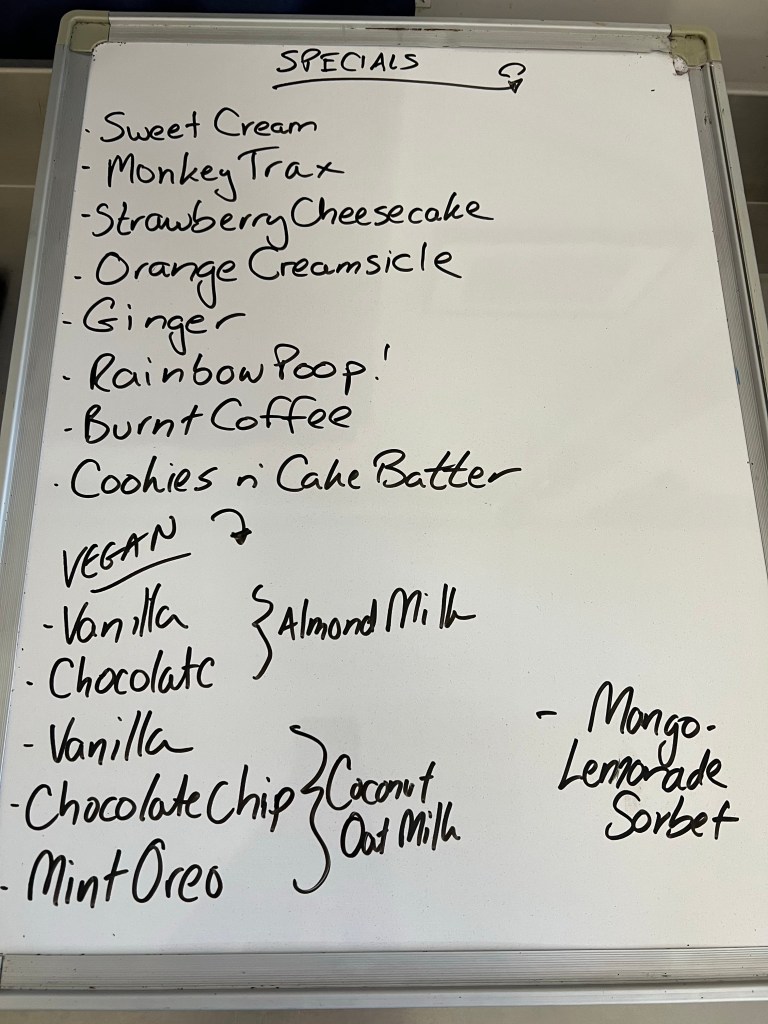 SPECIALS
· Sweet Cream
- Monkey Trax
- Strawberry Cheesecake
· Orange Creamsicle
- Ginger
· Rainbow Poop!
- Burnt Coffee
· Cookies n' Cake Batter
VEGAN
- Vanilla
· Chocolate
} Almond Milk
- Vanilla
- Chocolate Chip
- Mint Oreo
} Coconut
Oat Milk
- Mango.
Lemonade
Sorbet